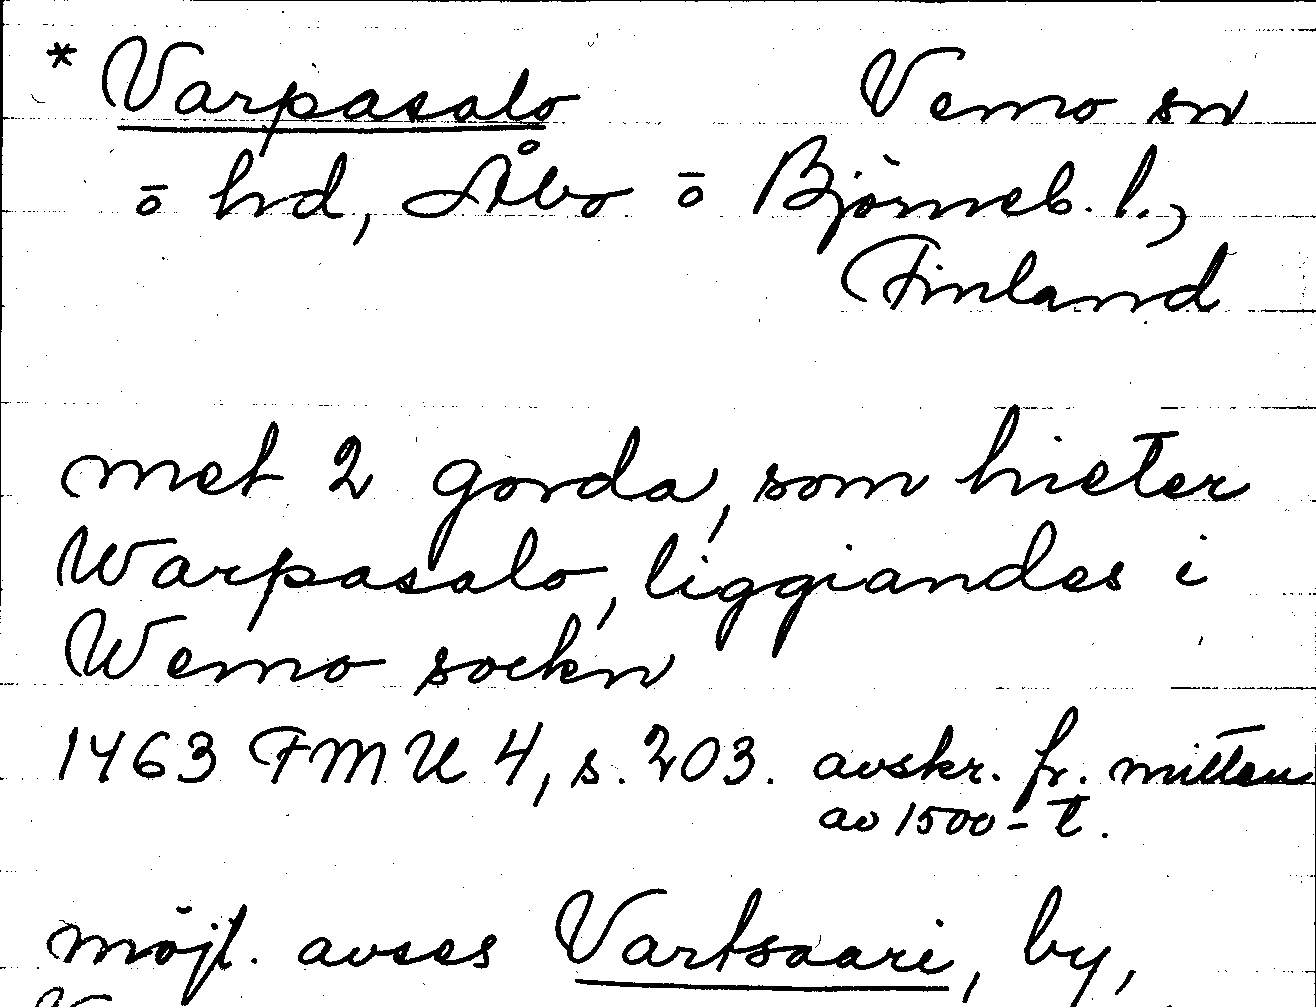 * Varpasalo Vemo sn
ō hd, Åbo ō Björneb. l.,
Finland
met 2 gorda, som hieter
Warpasalo, liggiandes i
Wemo sockn
1463 FMU 4, s. 203. avskr. fr. mitten
av 1500-t.
möjl. avses Vartsaari, by,